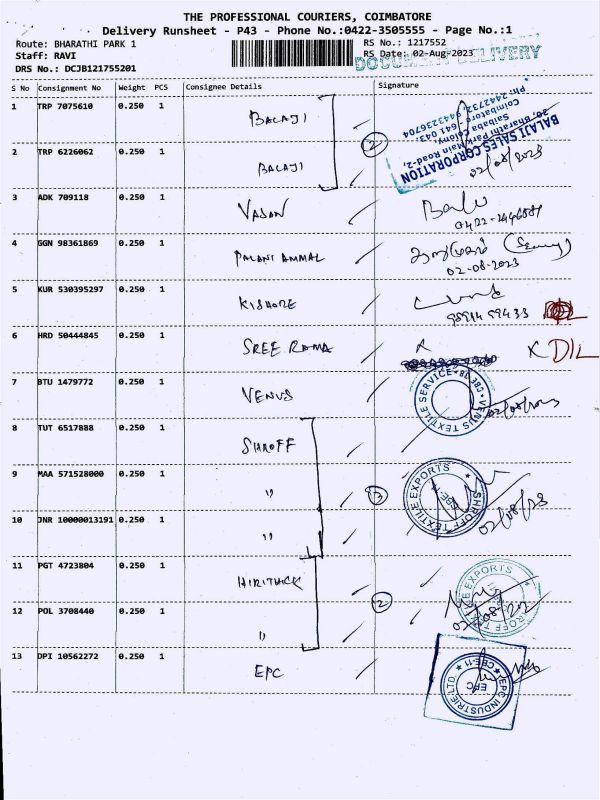 THE PROFESSIONAL COURIERS, COIMBATORE
Delivery Runsheet - P43 - Phone No.:0422-3505555 - Page No.:1
Route: BHARATHI PARK 1 RS No.: 1217552
Staff: RAVI RS Date: 02-Aug-2023
DRS No.: DCJB121755201 DOCUMENT DELIVERY
S No Consignment No Weight PCS Consignee Details Signature
1 TRP 7075610 0.250 1 BALAJI
BALAJI SALES CORPORATION
20, Bharathi Park Main Road-2,
Saibaba Colony,
Coimbatore - 641 043.
Ph: 2442732, 9443236704
2
2 TRP 6226062 0.250 1 BALAJI 02/08/2023
3 ADK 709118 0.250 1 VASAN Balu
4 GGN 98361869 0.250 1 PALANI AMMAL
02-08-2023
5 KUR 530395297 0.250 1 KISHORE
6 HRD 50444845 0.250 1 SREE RAMA X DIL
7 BTU 1479772 0.250 1 VENUS
VENUS TEXTILE SERVICE CBE
8 TUT 6517888 0.250 1 SHROFF
9 MAA 571528000 0.250 1 " 3
SHROFF TEXTILE EXPORTS CBE
02/08/23
10 JNR 10000013191 0.250 1 "
11 PGT 4723804 0.250 1
SHROFF TEXTILE EXPORTS
2
12 POL 3708440 0.250 1 "
13 DPI 10562272 0.250 1 EPC
EPC INDUSTRIE LTD. CBE-11
EPC